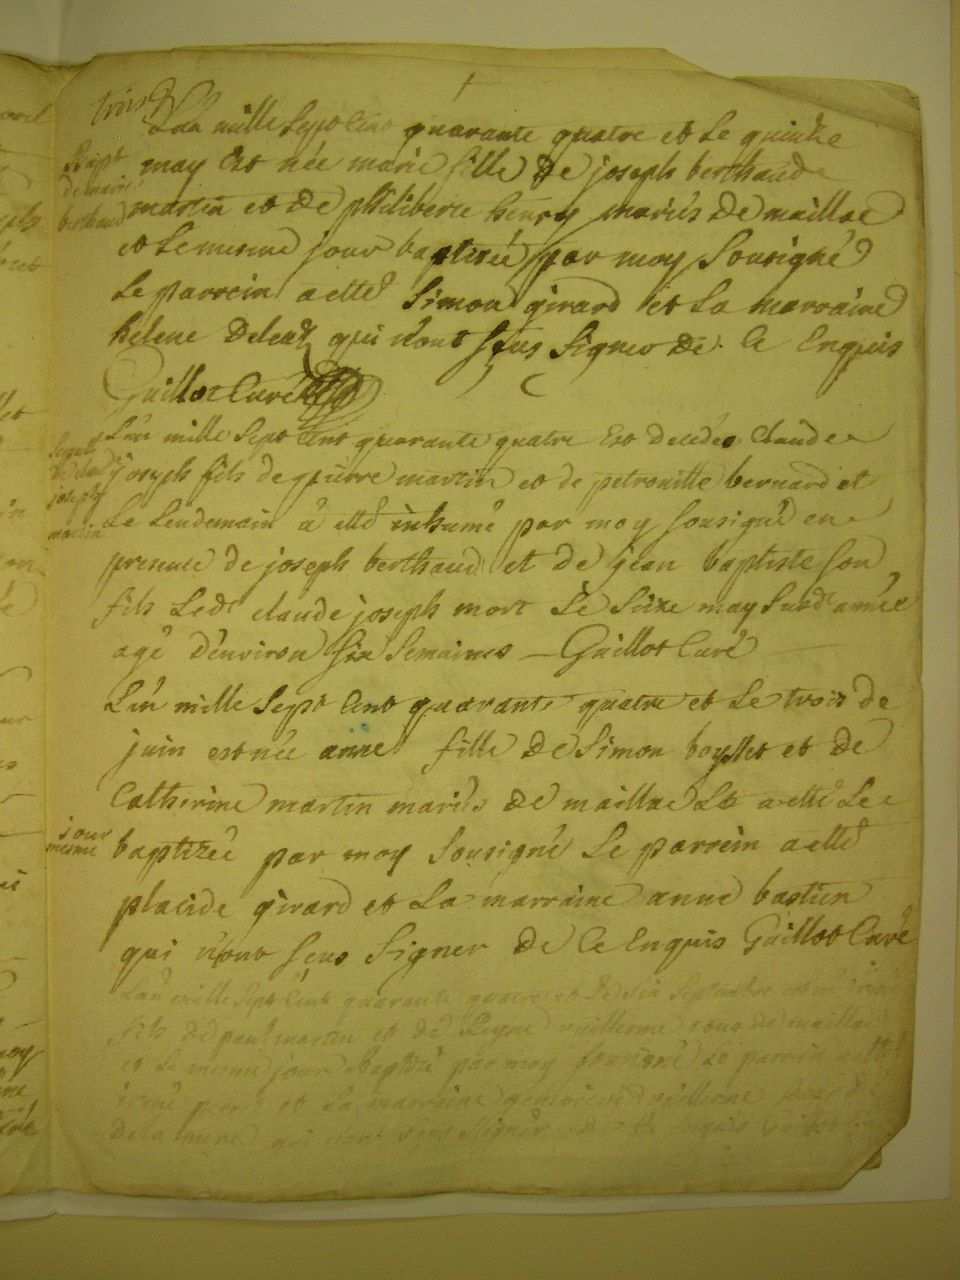 trois
L'an mille Sept Cent quarante quatre et Le quinze
Bapt may Est née marie fille De joseph berthaud
de marie martin et De philiberte henry mariés De maillac
berthaud et Le mesme jour baptisée par moy Sousigné
Le parrein a etté Simon girard et La marraine
helene Deleal qui n'ont sçus Signer De Ce Enquis
Guillot Curé
L'an mille Sept Cent quarante quatre Est decédé Claude
joseph fils de pierre martin et de petronille bernard et
Le Lendemain à etté inhumé par moy sousigné en
joseph
martin
presence de joseph berthaud et de jean baptiste son
fils Ledt claude joseph mort Le Seize may Surdt année
agé d'environ six Semaines — Guillot Curé
L'an mille Sept Cent quarante quatre et Le trois de
juin est née anne fille De Simon boysset et de
Catherine martin mariés De maillac Et a etté Le
jour
mesme baptizée par moy Sousigné Le parrein a etté
placide girard et La marraine anne bastien
qui n'ont sçus Signer De Ce Enquis Guillot Curé
L'an mille Sept Cent quarante quatre et Le Six Septembre est né
fils de paul martin et de guillerme tous de maillac
et Le mesme jour Baptizé par moy sousigné Le parrein a etté
et La marraine
qui n'ont sçus Signer de Ce Enquis Guillot